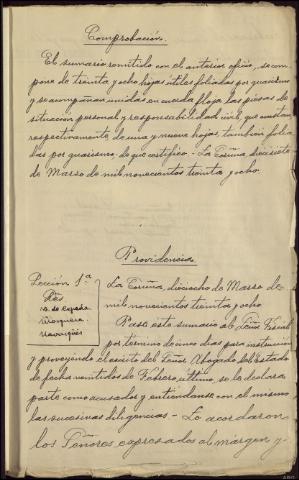 Comprobación.
El sumario remitido con el anterior oficio, se com-
pone de treinta y ocho hojas útiles foliadas por guarismo
y se acompañan unidas en cuerda floja las piezas de
situación personal y responsabilidad civil, que constan
respectivamente de una y nueve hojas, tambien folia
das por guarismo, de que certifico - La Coruña diecisiete
de Marzo de mil novecientos treinta y ocho.
Providencia
Sección 1ª
Ptes
La Coruña, dieciocho de Marzo de
mil novecientos treinta y ocho
Pase este sumario al Señor Fiscal
por termino de cinco dias para instrucción
y proveyendo el escrito del Señor Abogado del Estado
de fecha veintidos de Febrero último se le declara
parte como acusador y entiendanse con el mismo
las sucesivas diligencias - Lo acordaron
los Señores expresados al margen y